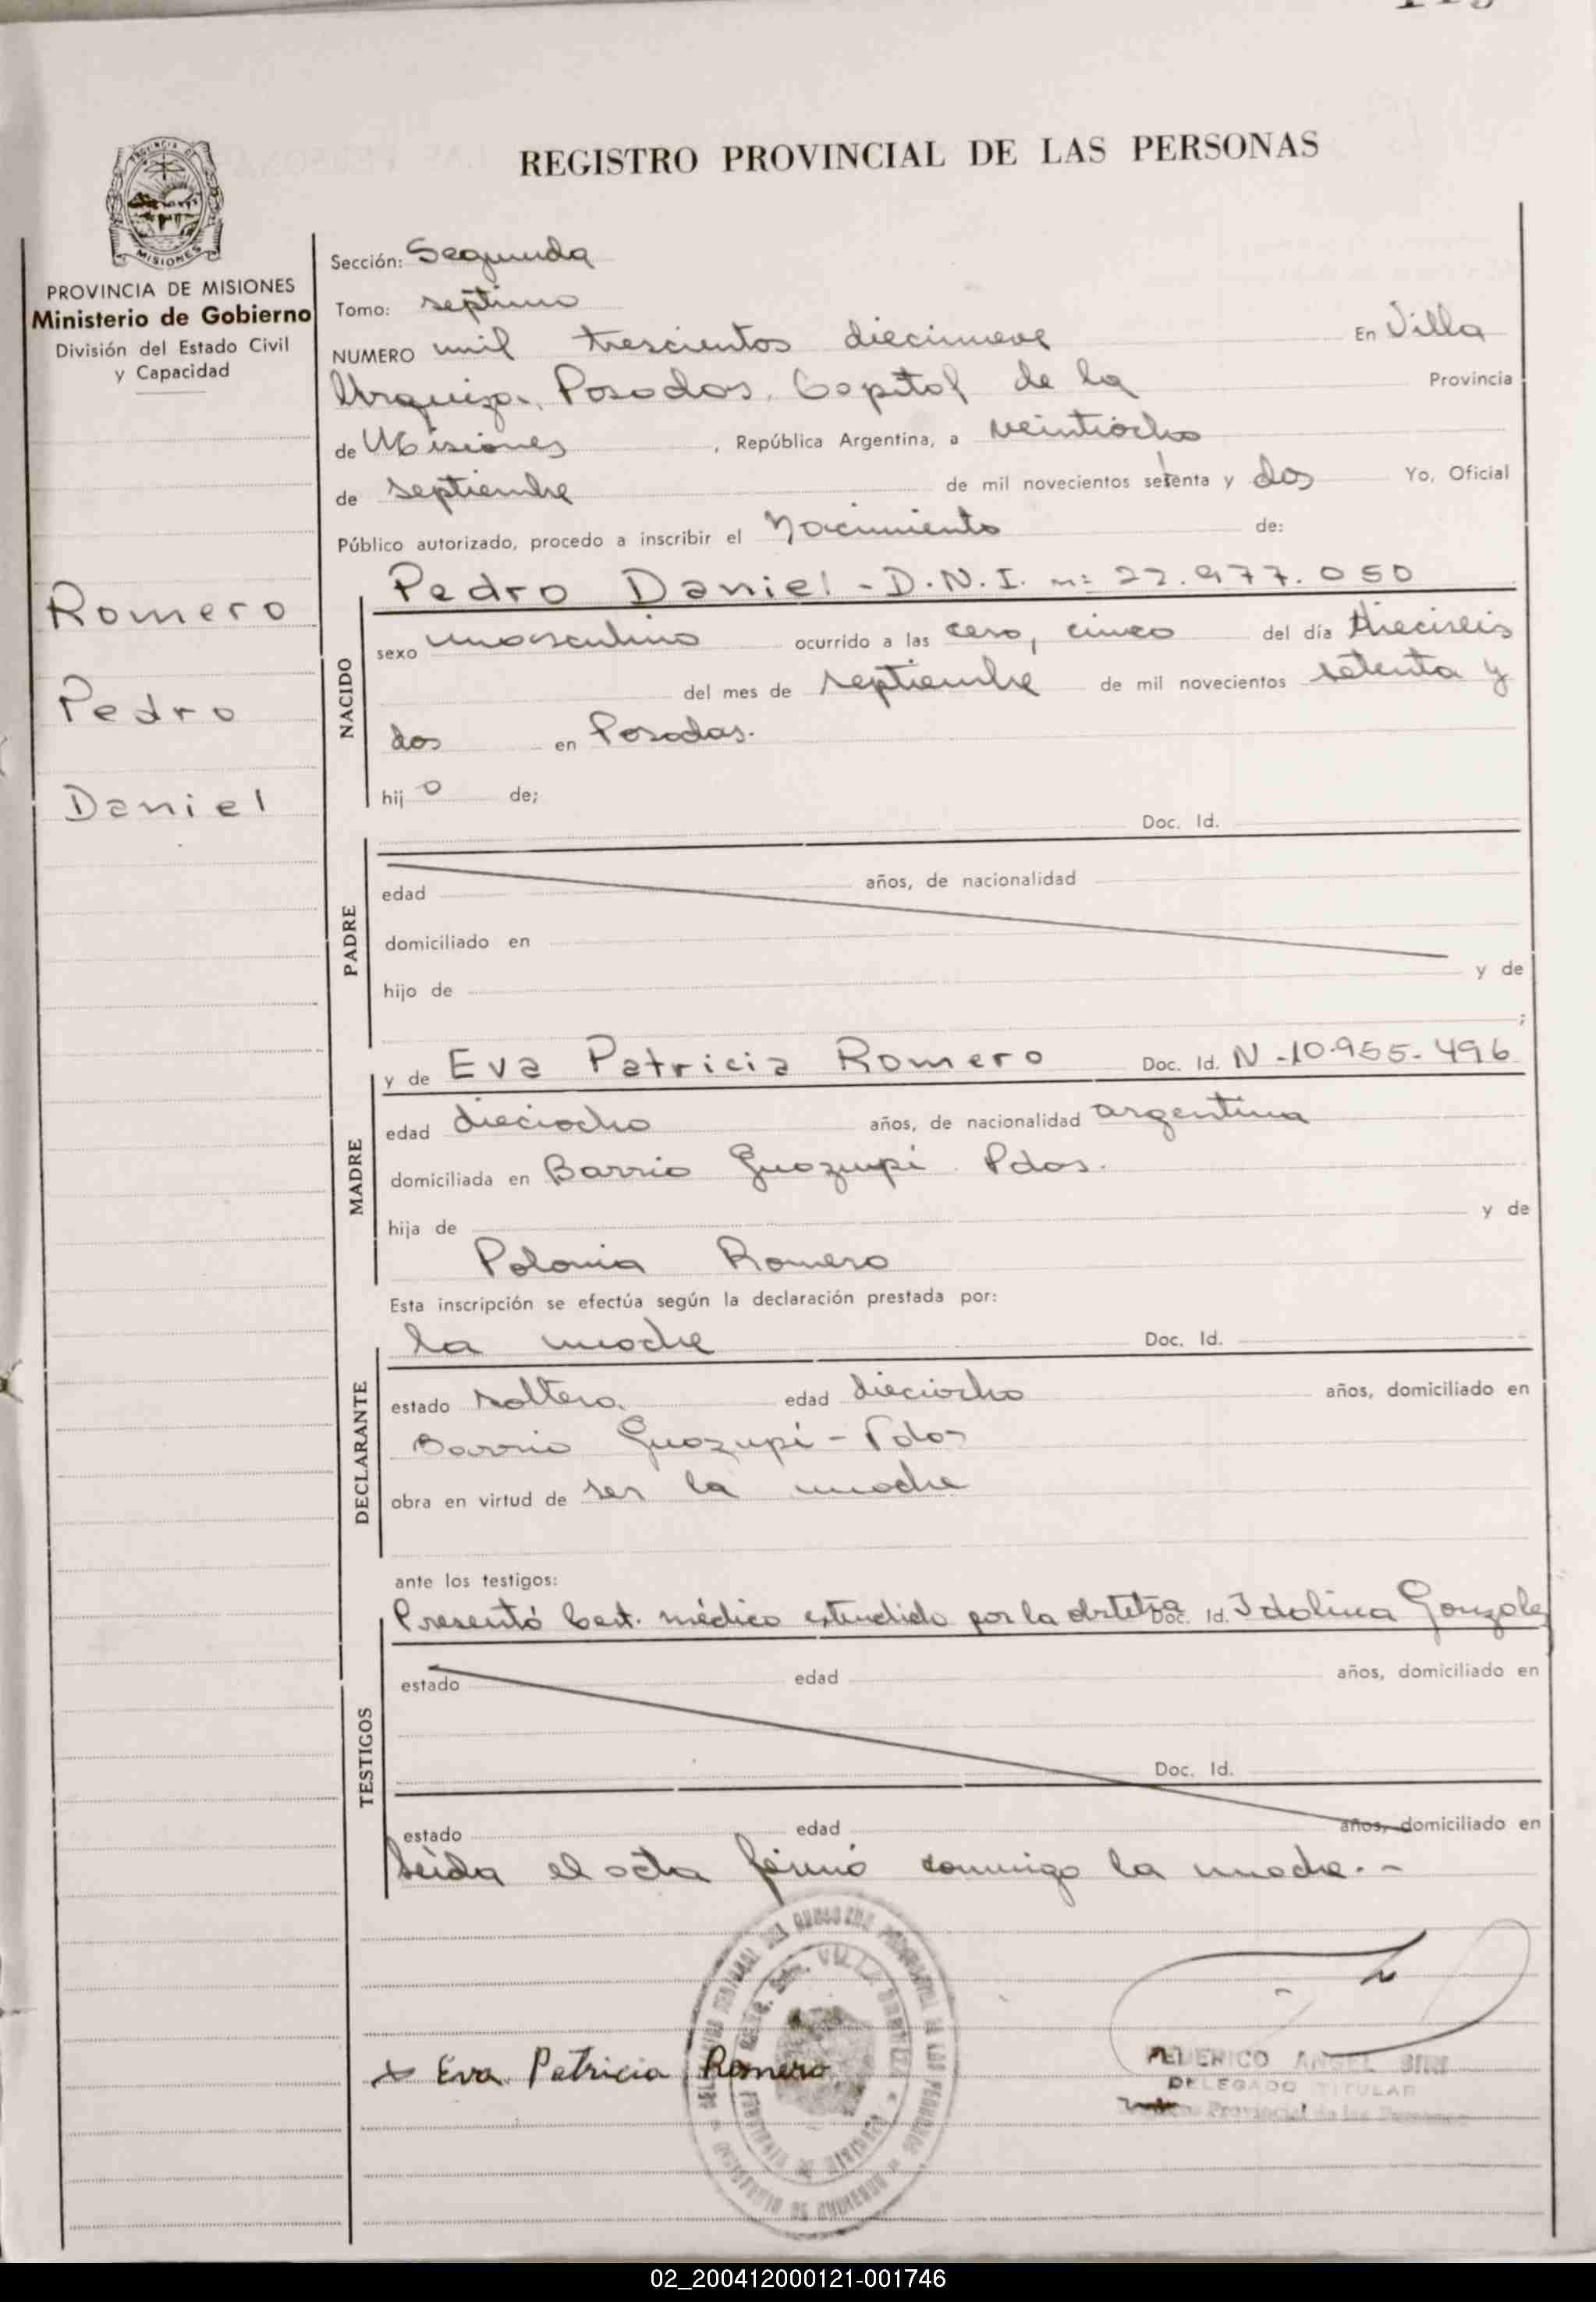 REGISTRO PROVINCIAL DE LAS PERSONAS
PROVINCIA DE
MISIONES
PROVINCIA DE MISIONES
Ministerio de Gobierno
División del Estado Civil
y Capacidad
Romero
Pedro
Daniel
Sección: Segunda
Tomo: septimo
NUMERO mil trescientos diecinueve En Villa
Urquiza, Posadas, Capital de la Provincia
de Misiones , República Argentina, a veintiocho
de septiembre de mil novecientos setenta y dos Yo, Oficial
Público autorizado, procedo a inscribir el Nacimiento de:
Pedro Daniel - D.N.I. n: 22.977.050
NACIDO
sexo masculino ocurrido a las cero, cinco del día dieciseis
del mes de septiembre de mil novecientos setenta y
dos en Posadas.
hij o de;
Doc. Id.
PADRE
edad años, de nacionalidad
domiciliado en
hijo de y de
;
y de Eva Patricia Romero Doc. Id. N-10.955-496
MADRE
edad dieciocho años, de nacionalidad argentina
domiciliada en Barrio Guazupi Pdas.
hija de y de
Polonia Romero
Esta inscripción se efectúa según la declaración prestada por:
la madre Doc. Id.
DECLARANTE
estado soltera. edad dieciocho años, domiciliado en
Barrio Guazupi - Pdas
obra en virtud de ser la madre
ante los testigos:
Presentó Cert. médico extendido por la obstetra Doc. Id. Idolina Gonzalez
TESTIGOS
estado edad años, domiciliado en
Doc. Id.
estado edad años, domiciliado en
Leida el acta firmó conmigo la madre.-
Eva Patricia Romero
FEDERICO ANGEL
DELEGADO TITULAR
Provincial de las Personas
02_200412000121-001746